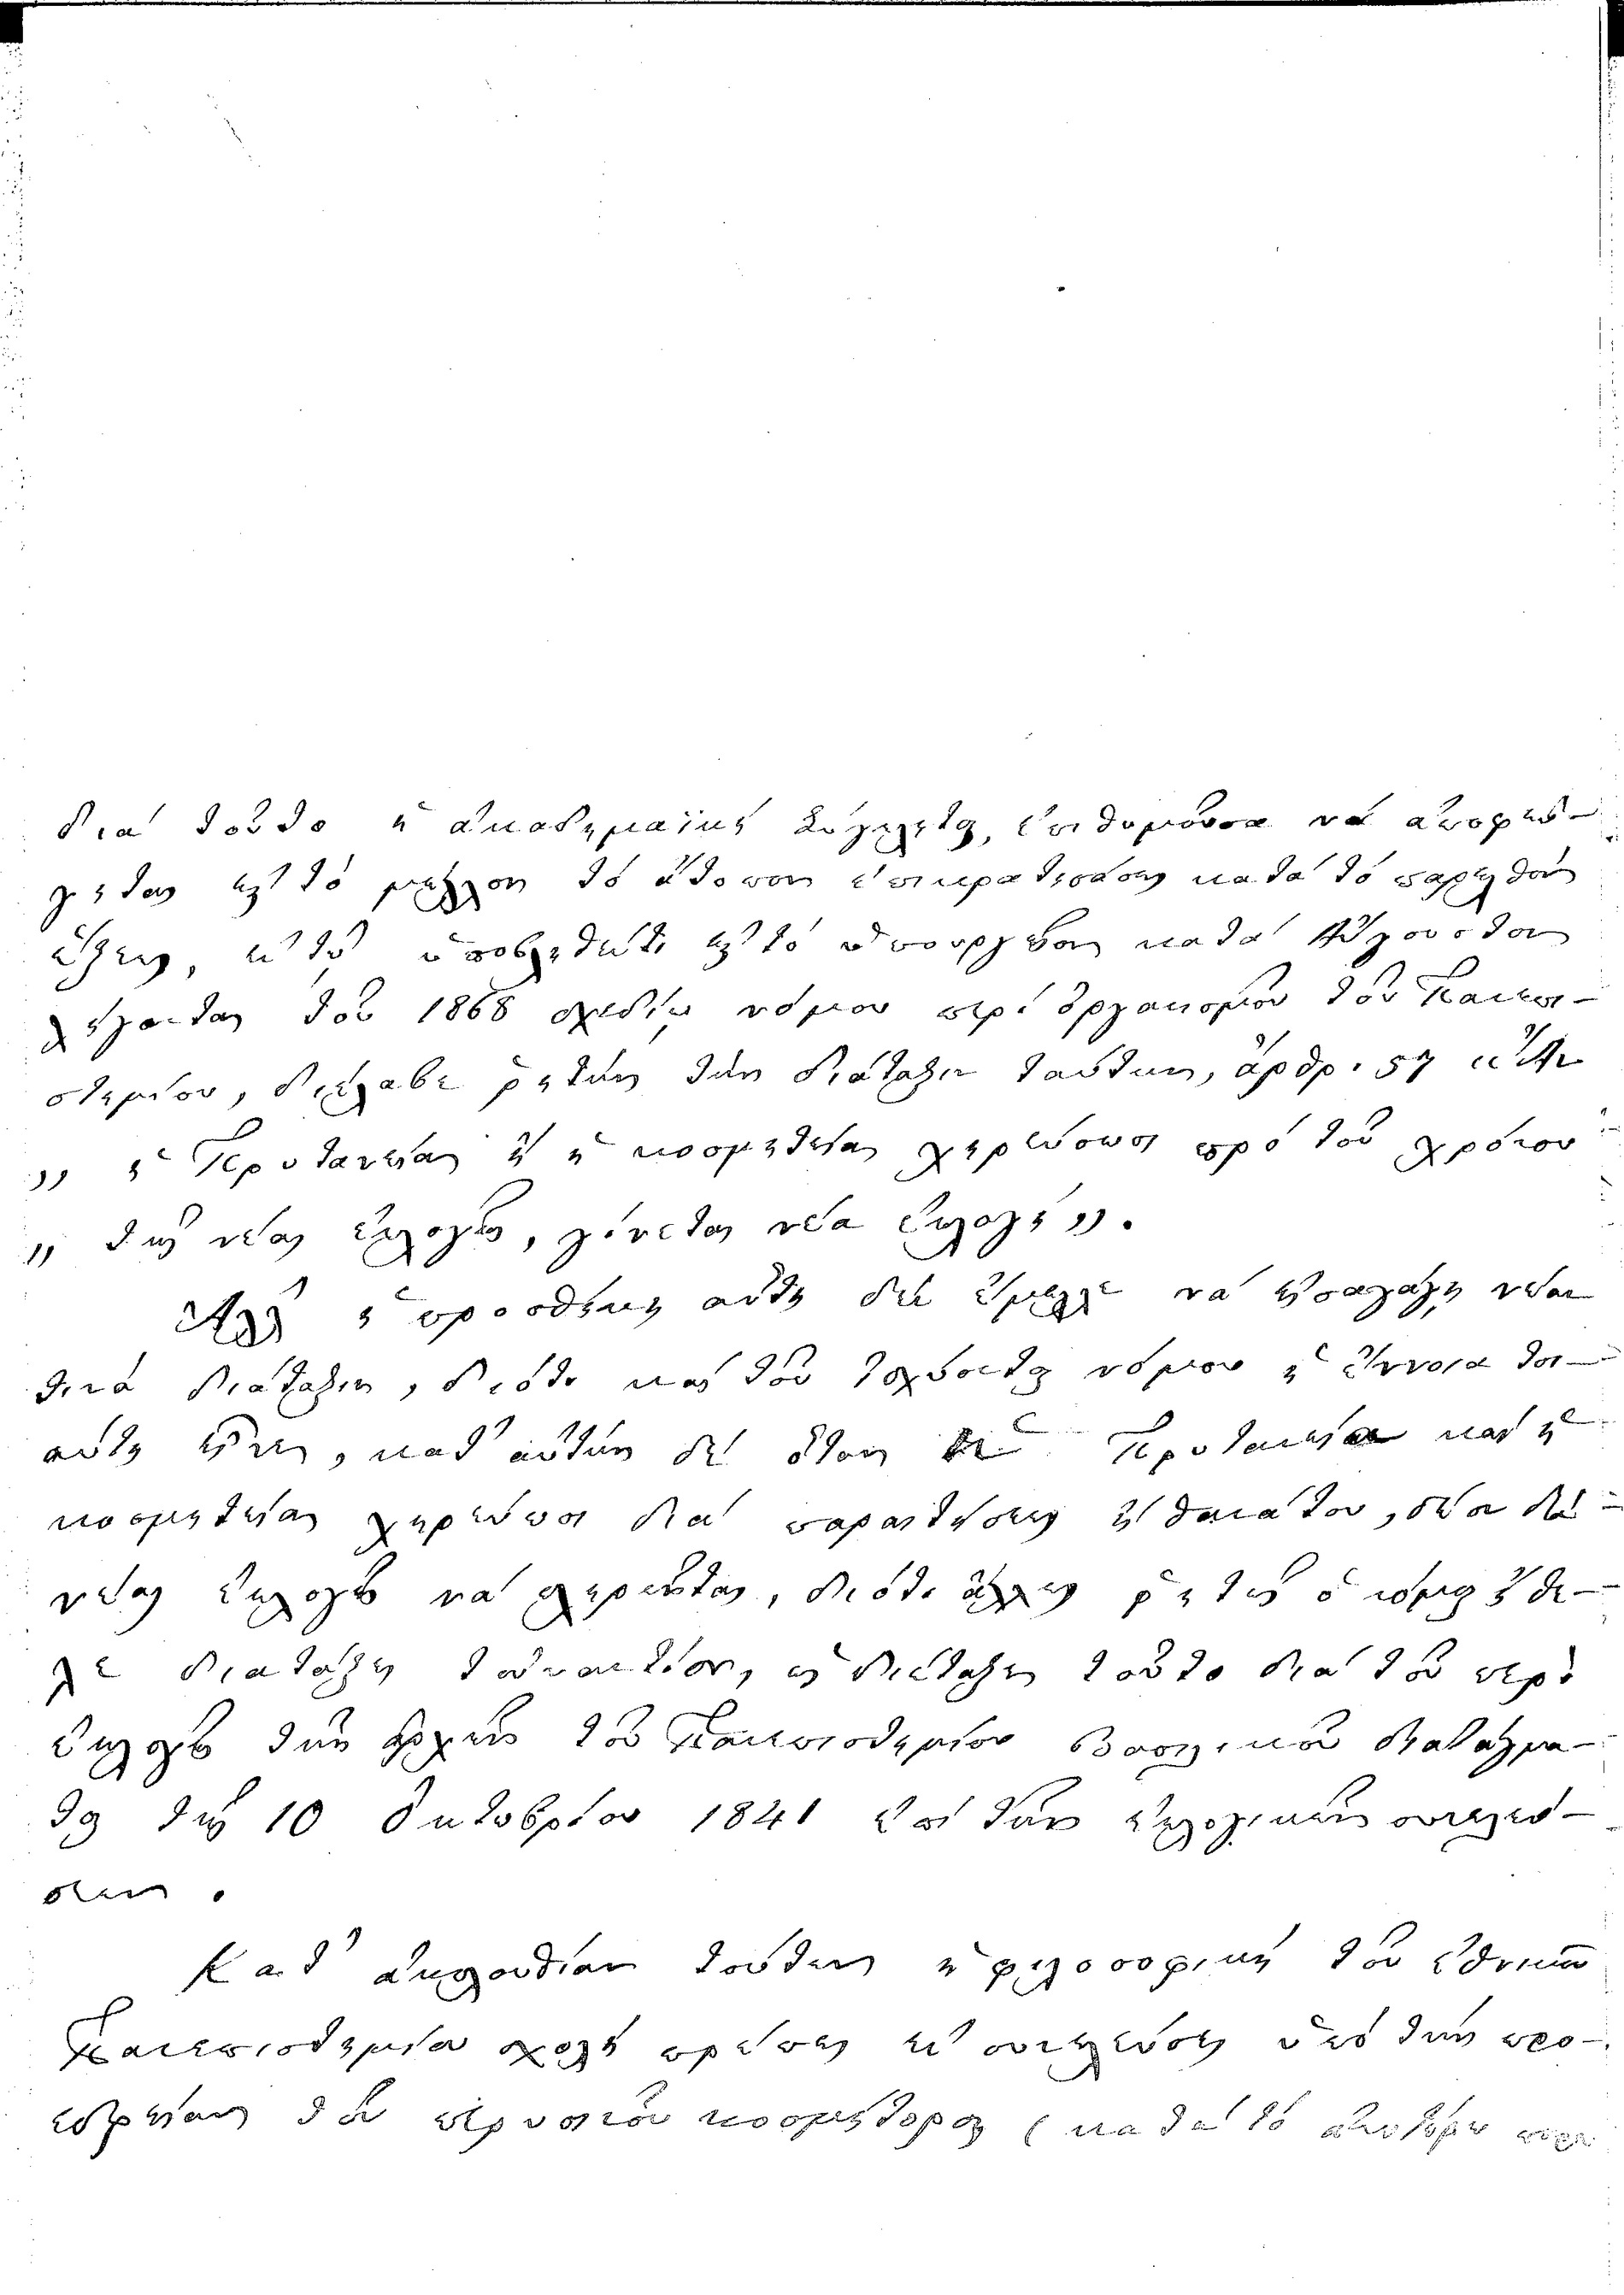 διὰ τοῦτο ἡ ἀκαδημαϊκὴ Σύγκλητος, ἐπιθυμοῦσα νὰ ἀποφεύ-
γηται εἰς τὸ μέλλον τὸ ἄτοπον ἐπικρατῆσαν κατὰ τὸ παρελθὸν
ἔθος, ἐν τῷ ὑποβληθέντι εἰς τὸ ὑπουργεῖον κατὰ Αὔγουστον
λήγοντα τοῦ 1868 σχεδίῳ νόμου περὶ ὀργανισμοῦ τοῦ Πανεπι-
στημίου, διέλαβε ῥητῶς τὴν διάταξιν ταύτην, ἄρθρ. 57 ἐὰν δὲ
„ ἡ Πρυτανεία ἢ ἡ κοσμητεία χηρεύσωσι πρὸ τοῦ χρόνου
„ τῆς νέας ἐκλογῆς, γίνεται νέα ἐκλογή ”.
Ἀλλ' ἡ προσθήκη αὕτη δὲν ἔμελλε νὰ εἰσαγάγῃ νέαν
τινὰ διάταξιν, διότι καὶ τοῦ ἰσχύοντος νόμου ἡ ἔννοια τοι-
αύτη εἶναι, κατ' αὐτὴν δὲ ὅταν ἡ Πρυτανεία καὶ ἡ
κοσμητεία χηρεύσωσι διὰ παραιτήσεως ἢ θανάτου,
νέας ἐκλογῆς νὰ πληρῶνται, διότι ἄλλως ῥητῶς ὁ νόμος ἤθε-
λε διατάξει τοὐναντίον, ὡς διέταξε τοῦτο διὰ τοῦ περὶ
ἐκλογῆς τῶν ἀρχῶν τοῦ Πανεπιστημίου Βασιλικοῦ διατάγμα-
τος τῆς 10 Ὀκτωβρίου 1841 ἐπὶ τῶν ἐκλογικῶν συνελεύ-
σεων.
Κατ' ἀκολουθίαν τούτων ἡ φιλοσοφικὴ τοῦ Ἐθνικοῦ
Πανεπιστημίου σχολὴ πρέπει νὰ συνέλθῃ ὑπὸ τὴν προ-
εδρείαν τοῦ περυσινοῦ κοσμήτορος (κατὰ τὸ